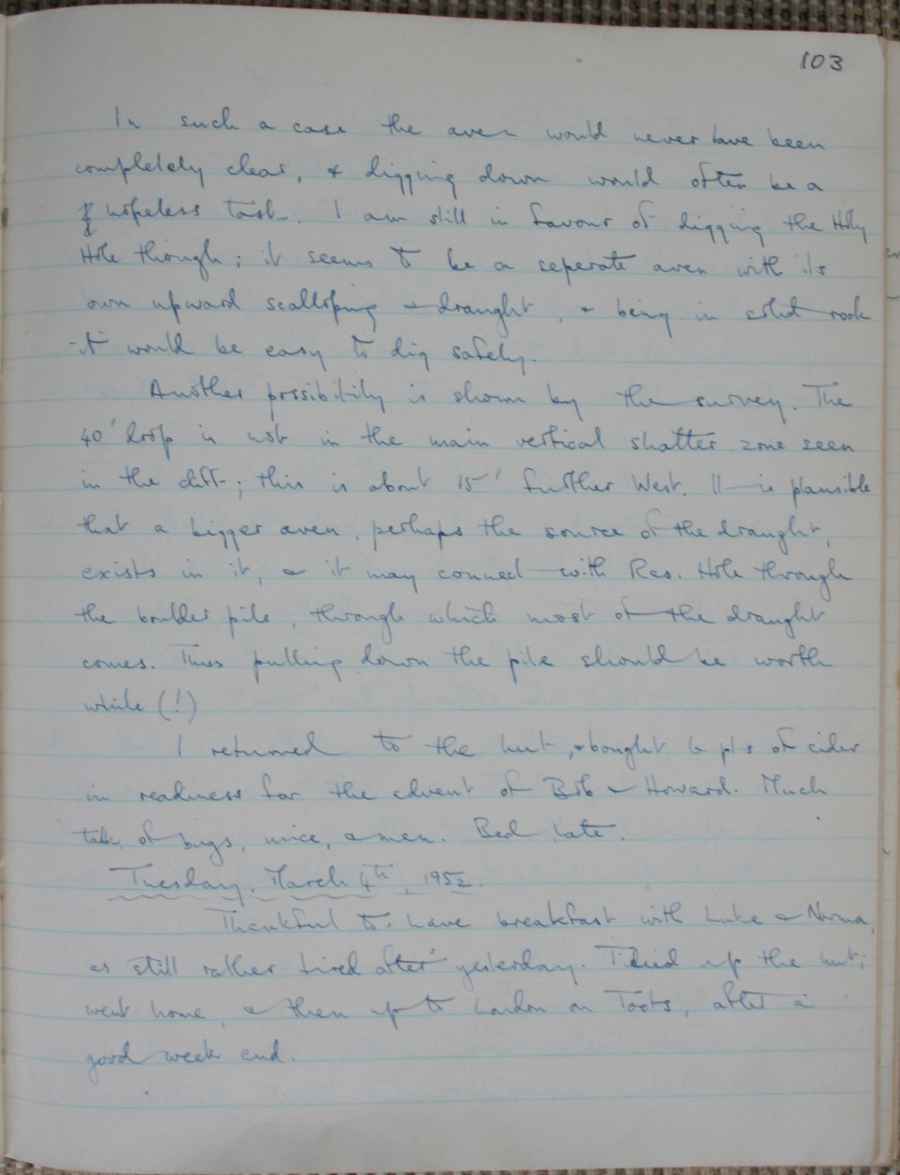 103
In such a case the aven would never have been
completely clear, & digging down would often be a
hopeless task. I am still in favour of digging the Holy
Hole though; it seems to be a seperate aven with its
own upward scalloping & draught, & being in solid rock
it would be easy to dig safely.
Another possibility is shown by the survey. The
40' drop is not in the main vertical shatter zone seen
in the cliff; this is about 15' further West. It is plausible
that a bigger aven, perhaps the source of the draught,
exists in it, & it may connect with Res. Hole through
the boulder pile, through which most of the draught
comes. Thus pulling down the pile should be worth
while (!)
I returned to the hut, & bought 6 pts of cider
in readiness for the advent of Bob & Howard. Much
talk of bugs, mice, & men. Bed late.
Tuesday, March 4th, 1952.
Thankful to have breakfast with Luke & Norma,
as still rather tired after yesterday. Tidied up the hut;
went home, & then up to London on Toots, after a
good week end.